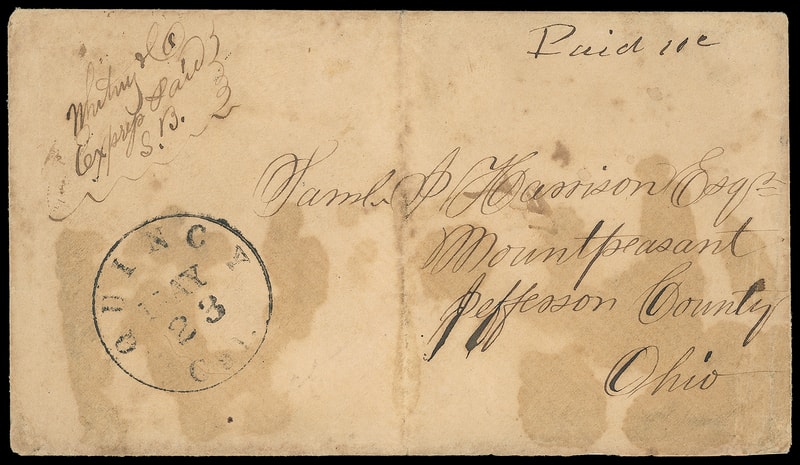 Paid 10c
Whitney & Co
Express Paid
S.B.
Saml. P Harrison Esqr
Mountpeasant
Jefferson County
Ohio
QUINCY
MAY
23
Cal.